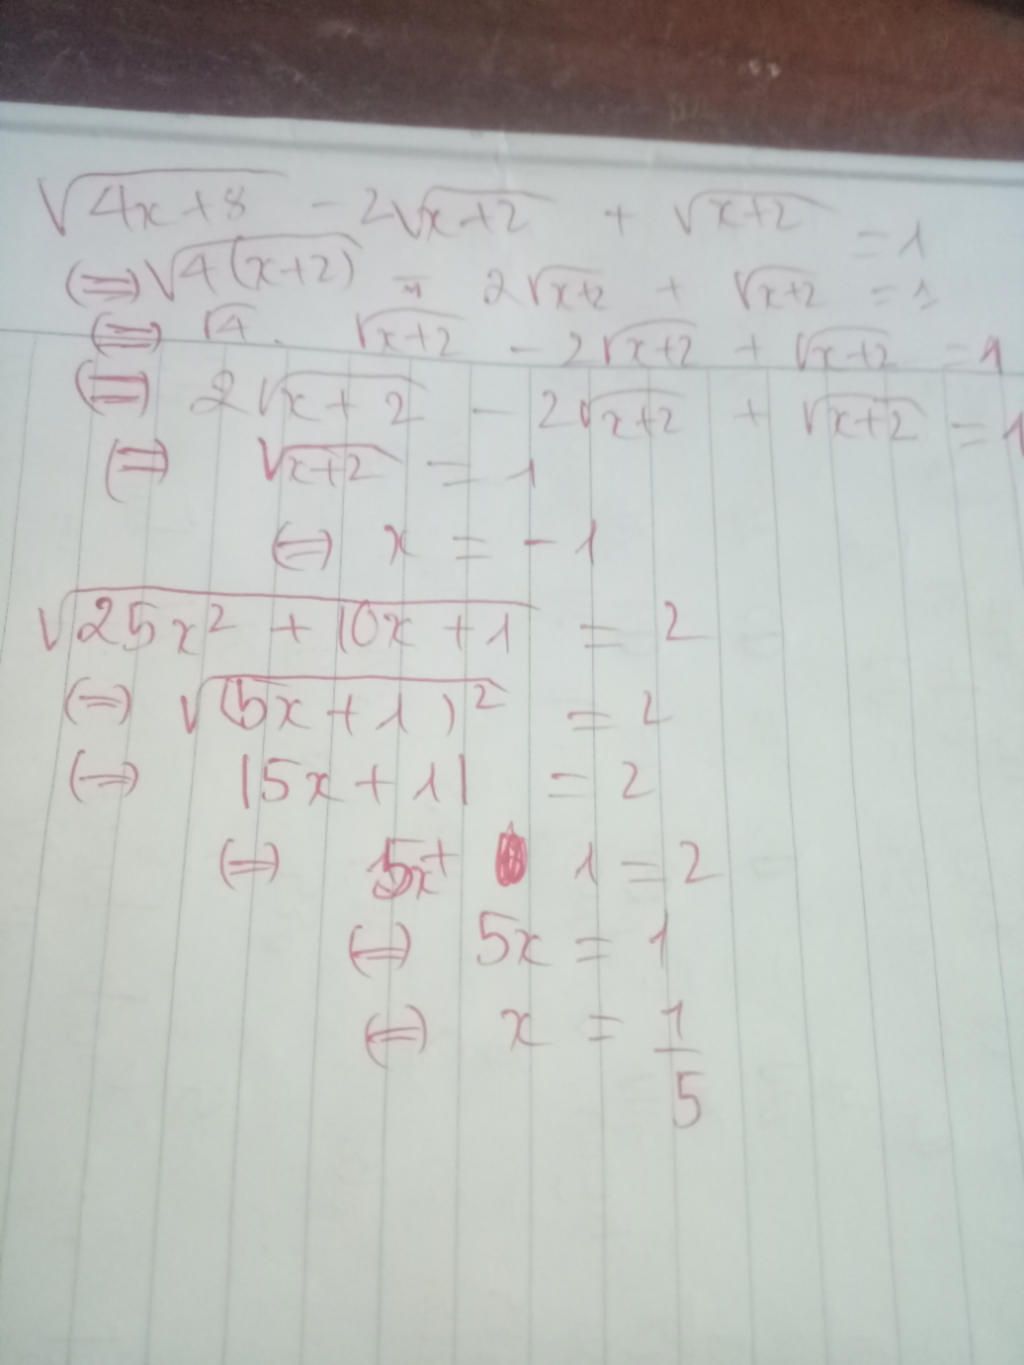 √(4x+8) - 2√(x+2) + √(x+2) = 1
(=) √(4(x+2)) - 2√(x+2) + √(x+2) = 1
(=) √4 . √(x+2) - 2√(x+2) + √(x+2) = 1
(=) 2√(x+2) - 2√(x+2) + √(x+2) = 1
(=) √(x+2) = 1
(=) x = -1
√(25x² + 10x + 1) = 2
(=) √((5x+1)²) = 2
(=) |5x+1| = 2
(=) 5x+ 1 = 2
(=) 5x = 1
(=) x = 1/5